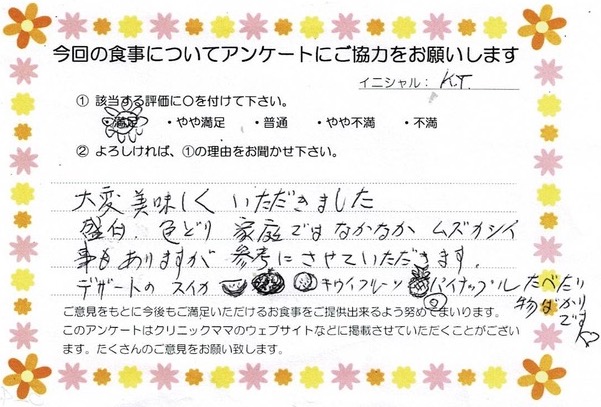 今回の食事についてアンケートにご協力をお願いします
イニシャル: K.T.
① 該当する評価に○を付けて下さい。
・満足 ・やや満足 ・普通 ・やや不満 ・不満
② よろしければ、①の理由をお聞かせ下さい。
大変美味しくいただきました
盛付、色どり 家庭ではなかなか ムズカシイ
事もありますが 参考にさせていただきます。
デザートの スイカ キウイフルーツ パイナップル たべたい
物ばかり
です
ご意見をもとに今後もご満足いただけるお食事をご提供出来るよう努めてまいります。
このアンケートはクリニックママのウェブサイトなどに掲載させていただくことがござい
ます。たくさんのご意見をお願い致します。